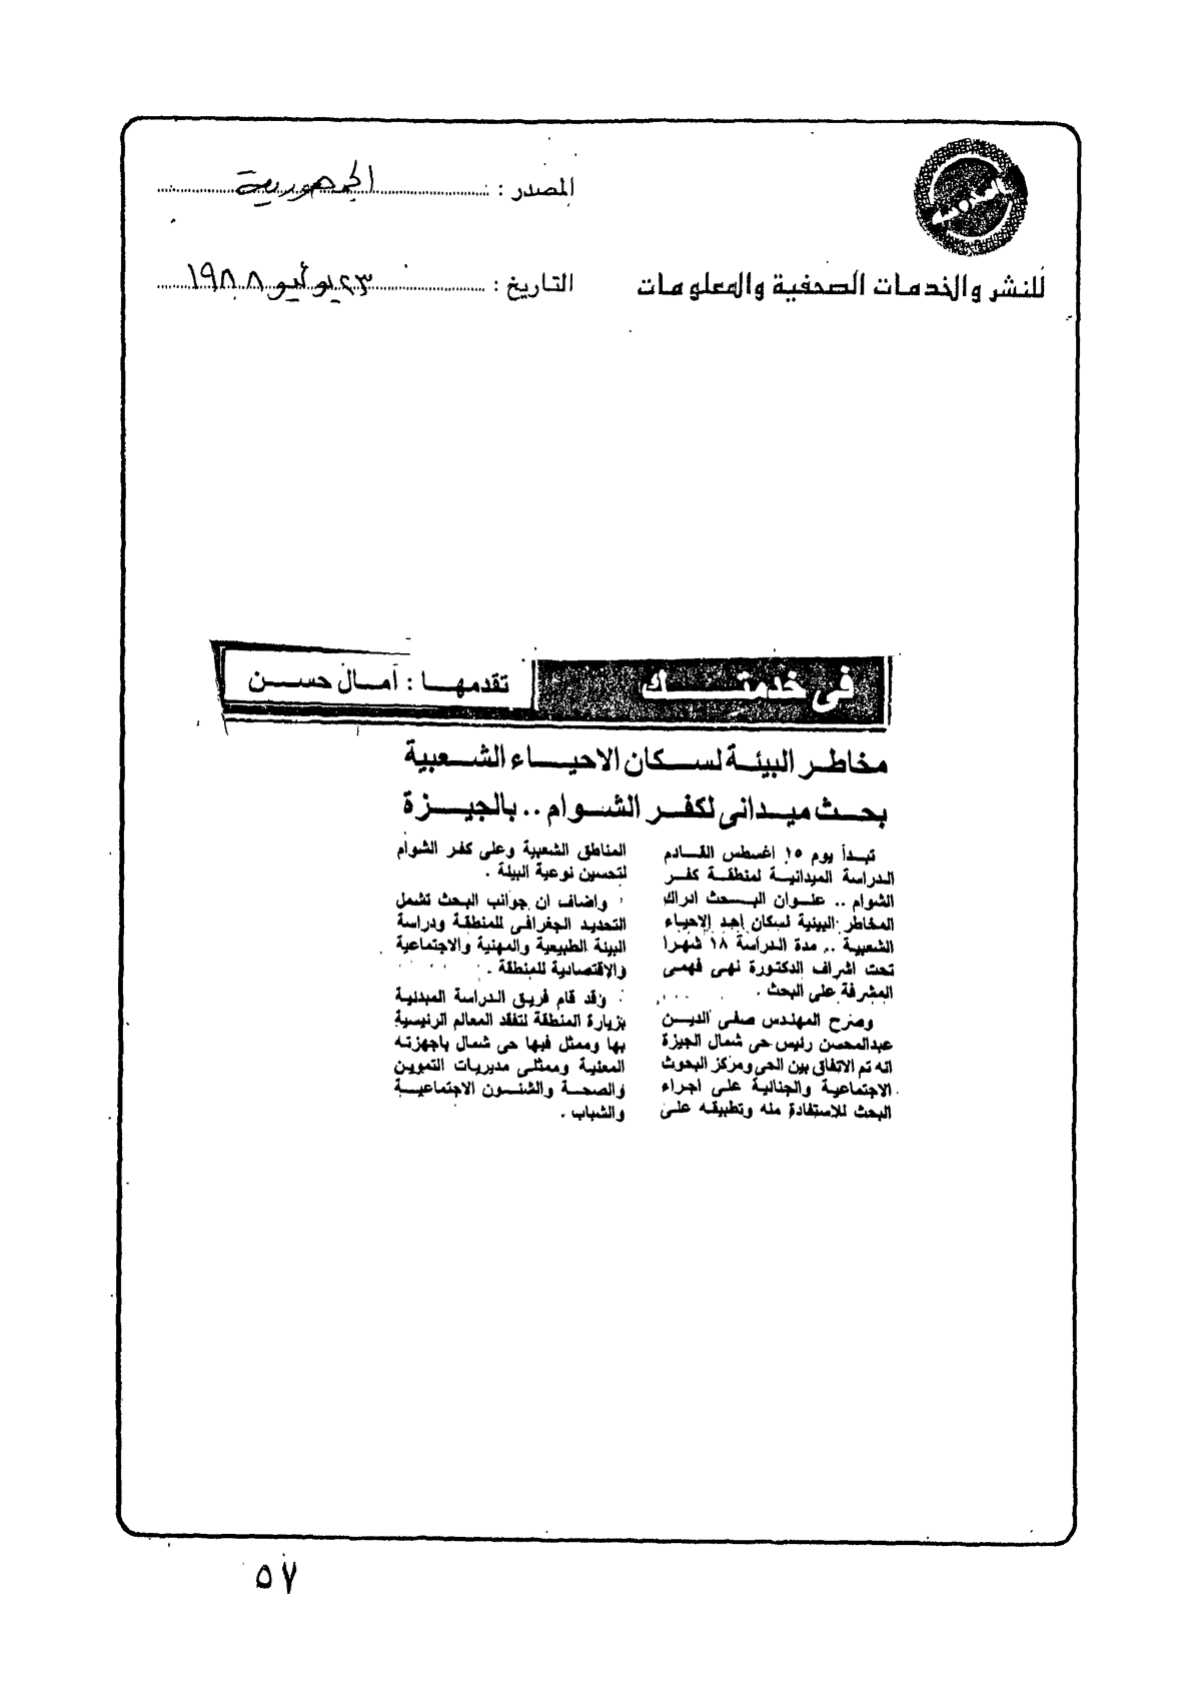 المصدر : الجمهورية
للنشر والخدمات الصحفية والمعلومات
التاريخ : ٢٣ يوليو ١٩٨٨
فى خدمتك
تقدمها : آمال حسن
مخاطر البيئة لسكان الاحياء الشعبية
بحث ميدانى لكفر الشوام .. بالجيزة
تبدأ يوم ١٥ اغسطس القادم
الدراسة الميدانية لمنطقة كفر
الشوام .. علوان البحث ادراك
المخاطر البيئية لسكان احد الاحياء
الشعبية .. مدة الدراسة ١٨ شهرا
تحت اشراف الدكتورة نهى فهمى
المشرفة على البحث .
وصرح المهندس صفى الدين
عبدالمحسن رئيس حى شمال الجيزة
انه تم الاتفاق بين الحى ومركز البحوث
الاجتماعية والجنائية على اجراء
البحث للاستفادة منه وتطبيقه على
المناطق الشعبية وعلى كفر الشوام
لتحسين نوعية البيئة .
واضاف ان جوانب البحث تشمل
التحديد الجغرافى للمنطقة ودراسة
البيئة الطبيعية والمهنية والاجتماعية
والاقتصادية للمنطقة .
وقد قام فريق الدراسة المبدئية
بزيارة المنطقة لتفقد المعالم الرئيسية
بها وممثل فيها حى شمال باجهزته
المعنية وممثلى مديريات التموين
والصحة والشئون الاجتماعية
والشباب .
٥٧